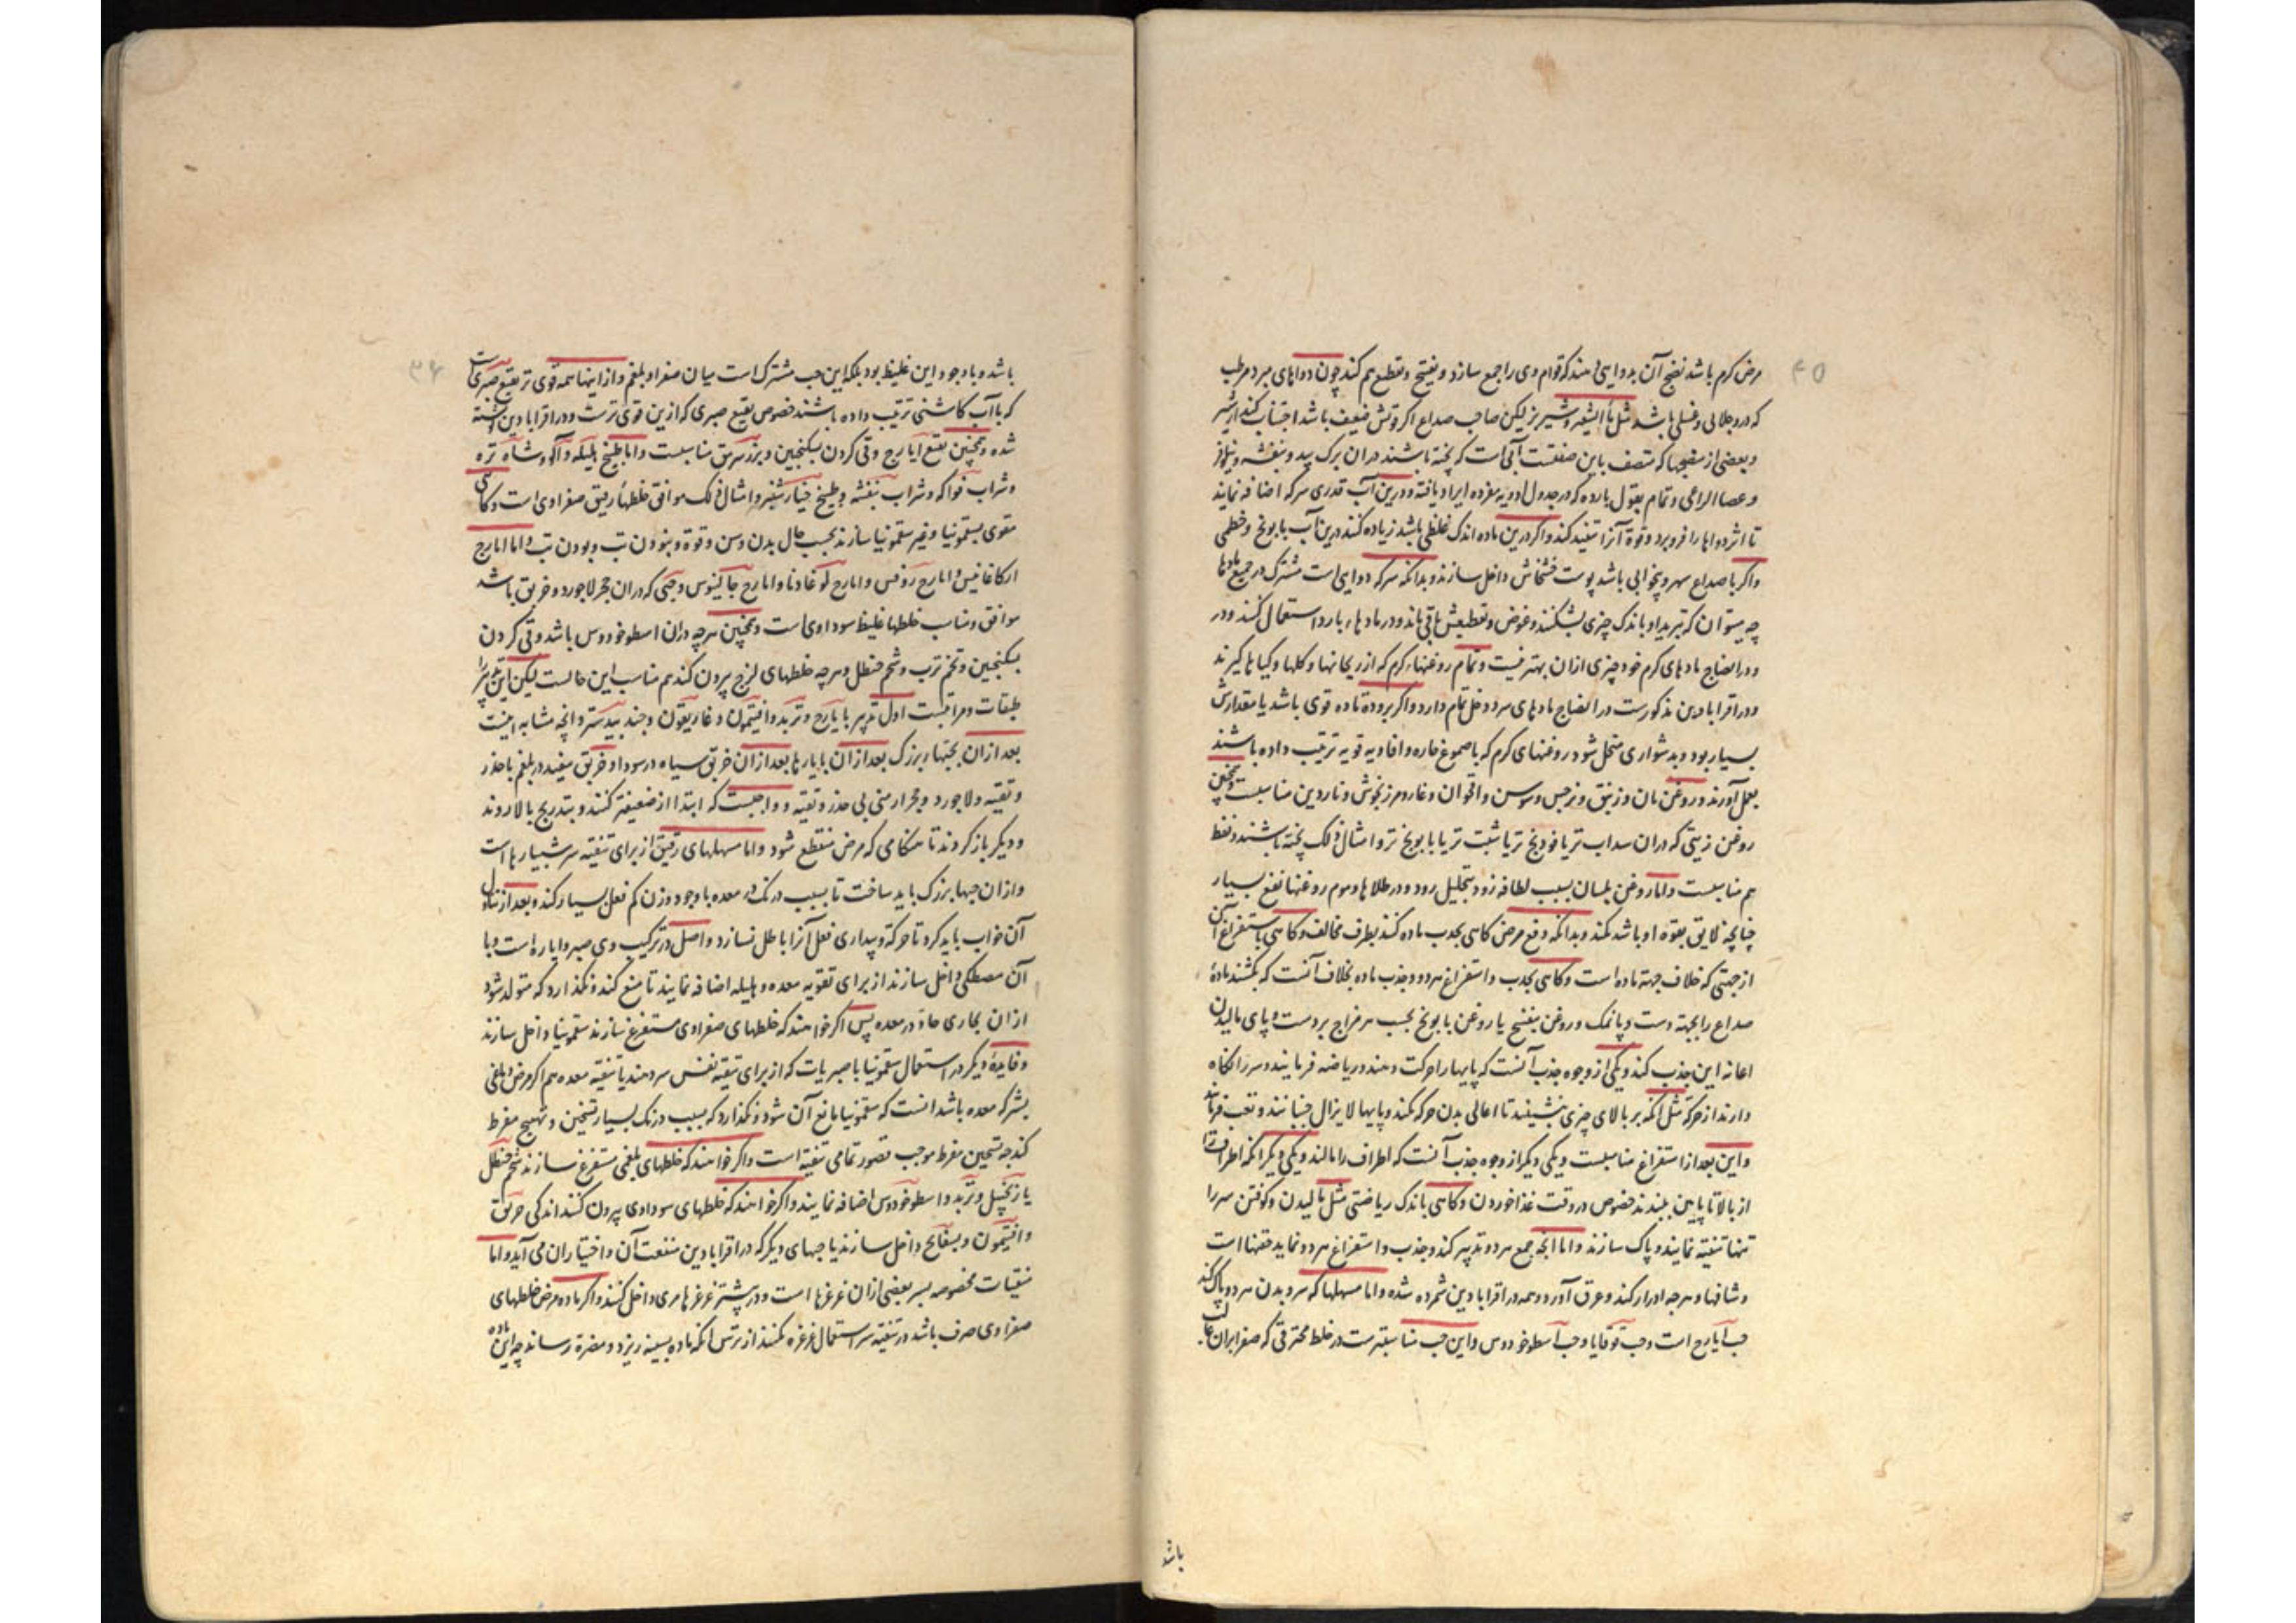 ۴۵
مرض کرم باشد نضج آن بدوایی دهند که قوام وی را جمع سازد و تفتیح و تقطیع هم کند چون دواهای مبرد مرطب
که درو جلالی و غسلی باشد مثل ماءالشعیر و شیر بز لیکن صاحب صداع اکر قوتش ضعیف باشد اجتناب کند از شیر
و بعضی از منضجها که متصف باین صفتست آبی است که پخته باشند دران برک بید و بنفشه و نیلوفر
و عصا الراعی و تمام بقول بارده که در جدول ادویه مفرده ایراد یافته و درین آب قدری سرکه اضافه نمایند
تا اثر دواها را فرو برد و قوة آنرا تنفیذ کند و اکر درین ماده اندک غلظی باشد زیاده کنند درین آب بابونج و خطمی
و اکر با صداع سهر و بیخوابی باشد پوست خشخاش داخل سازند و بدانکه سرکه دوایی است مشترک در جمیع مادها
چه میتوان که تبرید او باندک چیزی بشکنند و غوص و تقطیعش باقی ماند و در مادهاء بارد استعمال کنند و در
و در انضاج مادهای کرم خود چیزی ازان بهتر نیست و تمام روغنهاء کرم که از ریحانها و کلها و کیاها کیرند
و در اقرابادین مذکورست در انضاج مادهای سرد دخل تمام دارد و اکر برودة ماده قوی باشد یا مقدارش
بسیار بود و بدشواری متحلل شود روغنهای کرم که با صموغ حاره و افاویه قویه ترتیب داده باشند
بعمل آورند و روغن بان و زنبق و نرجس و سوسن و اقحوان و غار و مرزنجوش و ناردین مناسبست و همچنین
روغن زیتی که دران سداب تر یا فودنج تر یا شبت تر یا بابونج تر و امثال ذلک پخته باشند و نفط
هم مناسبست و اما روغن بلسان بسبب لطافه زود بتحلیل رود و در طلاها و موم روغنها نفع بسیار
چنانچه لایق بقوه او باشد نکند و بدانکه دفع مرض کاهی بجذب ماده کنند بطرف مخالف و کاهی باستفراغ آن
از جهتی که خلاف جهة ماده است و کاهی بجذب و استفراغ هر دو و جذب ماده بخلاف آنست که بکشند مادهٔ
صداع را بجهة دست و پا نمک و روغن بنفسج یا روغن بابونج بحسب هر مزاج بر دست و پای مالیدن
اعانه این جذب کند و یکی از وجوه جذب آنست که پایها را حرکت دهند و ریاضه فرمایند و سر را نکاه
دارند از حرکة مثل آنکه بر بالای چیزی بنشینند تا اعالی بدن حرکه نکند و پایها لا یزال جنبانند و تعب فرمایند
و این بعد از استفراغ مناسبست و یکی دیکر از وجوه جذب آنست که اطراف را مالند و یکی دیکر آنکه اطراف را
از بالا تا پایین ببندند خصوص در وقت غذا خوردن و کاهی باندک ریاضتی مثل مالیدن و کوفتن سر را
تنها تنقیه نمایند و پاک سازند و اما آنچه جمع هر دو تدبیر کند و جذب و استفراغ هر دو نماید حقنها است
و شافها و هرچه ادرار کند و عرق آورد و همه در اقرابادین شمرده شده و اما مسهلها که سر و بدن هر دو پاک کند
حب آیارج است و حب قوقایا و حب اسطوخودوس و این حب مناسبترست در خلط محترقی که صفرا بران غالب
باشد
۴۶
باشد و با وجود این غلیظ بود بلکه این حب مشترک است میان صفرا و بلغم و از اینها همه قوی تر نقیع صبری است
که با آب کاشنی ترتیب داده باشند خصوص نقیع صبری که ازین قوی ترست و در اقرابادین نوشته
شده و همچنین نقیع آیارج و قی کردن بسکنجبین و بزر سرمق مناسبست و اما طبیخ هلیله و آلو و شاه تره
و شراب فواکه و شراب بنفشه و طبیخ خیارشنبر و امثال ذلک موافق خلطهاء رقیق صفراوی است و کاهی
مقوی بسقمونیا و غیر سقمونیا سازند بحسب حال بدن و سن و قوة و نبودن تب و بودن تب و اما ایارج
ارکاغانیس و ایارج روفس و ایارج لوغاذیا و ایارج جالینوس و حبی که دران حجر لاجورد و خربق باشد
موافق و مناسب خلطهاء غلیظ سوداوی است و همچنین هرچه دران اسطوخودوس باشد و قی کردن
بسکنجبین و تخم ترب و شحم حنظل و هرچه خلطهای لزج بیرون کند هم مناسب این حالست لیکن این تدبیر را
طبقات و مراتبست اول تدبیر بایارج و تربد و افتیمون و غاریقون و جندبیدستر و آنچه مشابه اینست
بعد ازان بحبهاء بزرک بعد ازان بایارجها بعد ازان خربق سیاه در سودا و خربق سفید در بلغم با حذر
و تقیه و لاجورد و حجر ارمنی بی حذر و تقیه و واجبست که ابتدا از ضعیفتر کنند و بتدریج بالا روند
و دیکر باز کردند تا هنکامی که مرض منقطع شود و اما مسهلهای رقیق از برای تنقیه سر شبیارها است
و ازان حبها بزرک باید ساخت تا بسبب درنک در معده با وجود وزن کم فعل بسیار کند و بعد از تناول
آن خواب باید کرد تا حرکة و بیداری فعل آنرا باطل نسازد و اصل در ترکیب وی صبر و ایاره است و با
آن مصطکی داخل سازند از برای تقویه معده و هلیله اضافه نمایند تا منع کند و نکذارد که متولد شود
ازان بخاری حاد در معده پس اکر خواهند که خلطهای صفراوی مستفرغ سازند سقمونیا داخل سازند
و فایدهٔ دیکر در استعمال سقمونیا با صبریات که از برای تنقیه نفس سر دهند یا تنقیه معده هم اکر مرض دماغی
بشرکه معده باشد آنست که سقمونیا مانع آن شود و نکذارد که بسبب درنک بسیار تسخین و تهییج مفرط
کند چه تسخین مفرط موجب قصور تمامی تنقیه است و اکر خواهند که خلطهای بلغمی مستفرغ سازند شحم حنظل
یا زنجبیل و تربد و اسطوخودوس اضافه نمایند و اکر خواهند که خلطهای سوداوی بیرون کنند اندکی خربق
و افتیمون و بسفایج داخل سازند یا حبهای دیکر که در اقرابادین منفعت آن و اختیار ان می آید و اما
منقیات مخصوصه بسر بعضی ازان غرغرها است و در بیشتر غرغرها مری داخل کنند و اکر ماده مرض خلطهای
صفراوی صرف باشد در تنقیه سر استعمال غرغره نکنند از ترس آنکه ماده بسینه ریزد و مضرة رساند چه این ماده